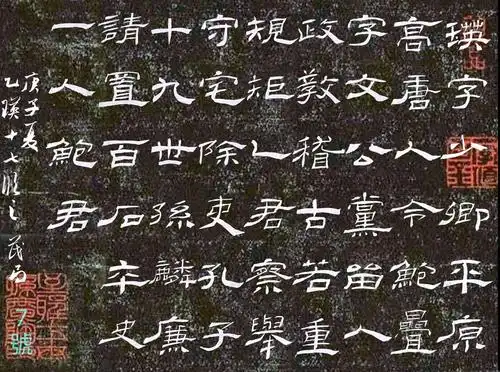 瑛字少卿平原
高唐人令鮑疊
字文公黨留人
政教稽古若重
規矩乙君察舉
守宅除吏孔子
十九世孫麟廉
請置百石卒史
一人鮑君
庚子夏
乙瑛十七臨之
7號